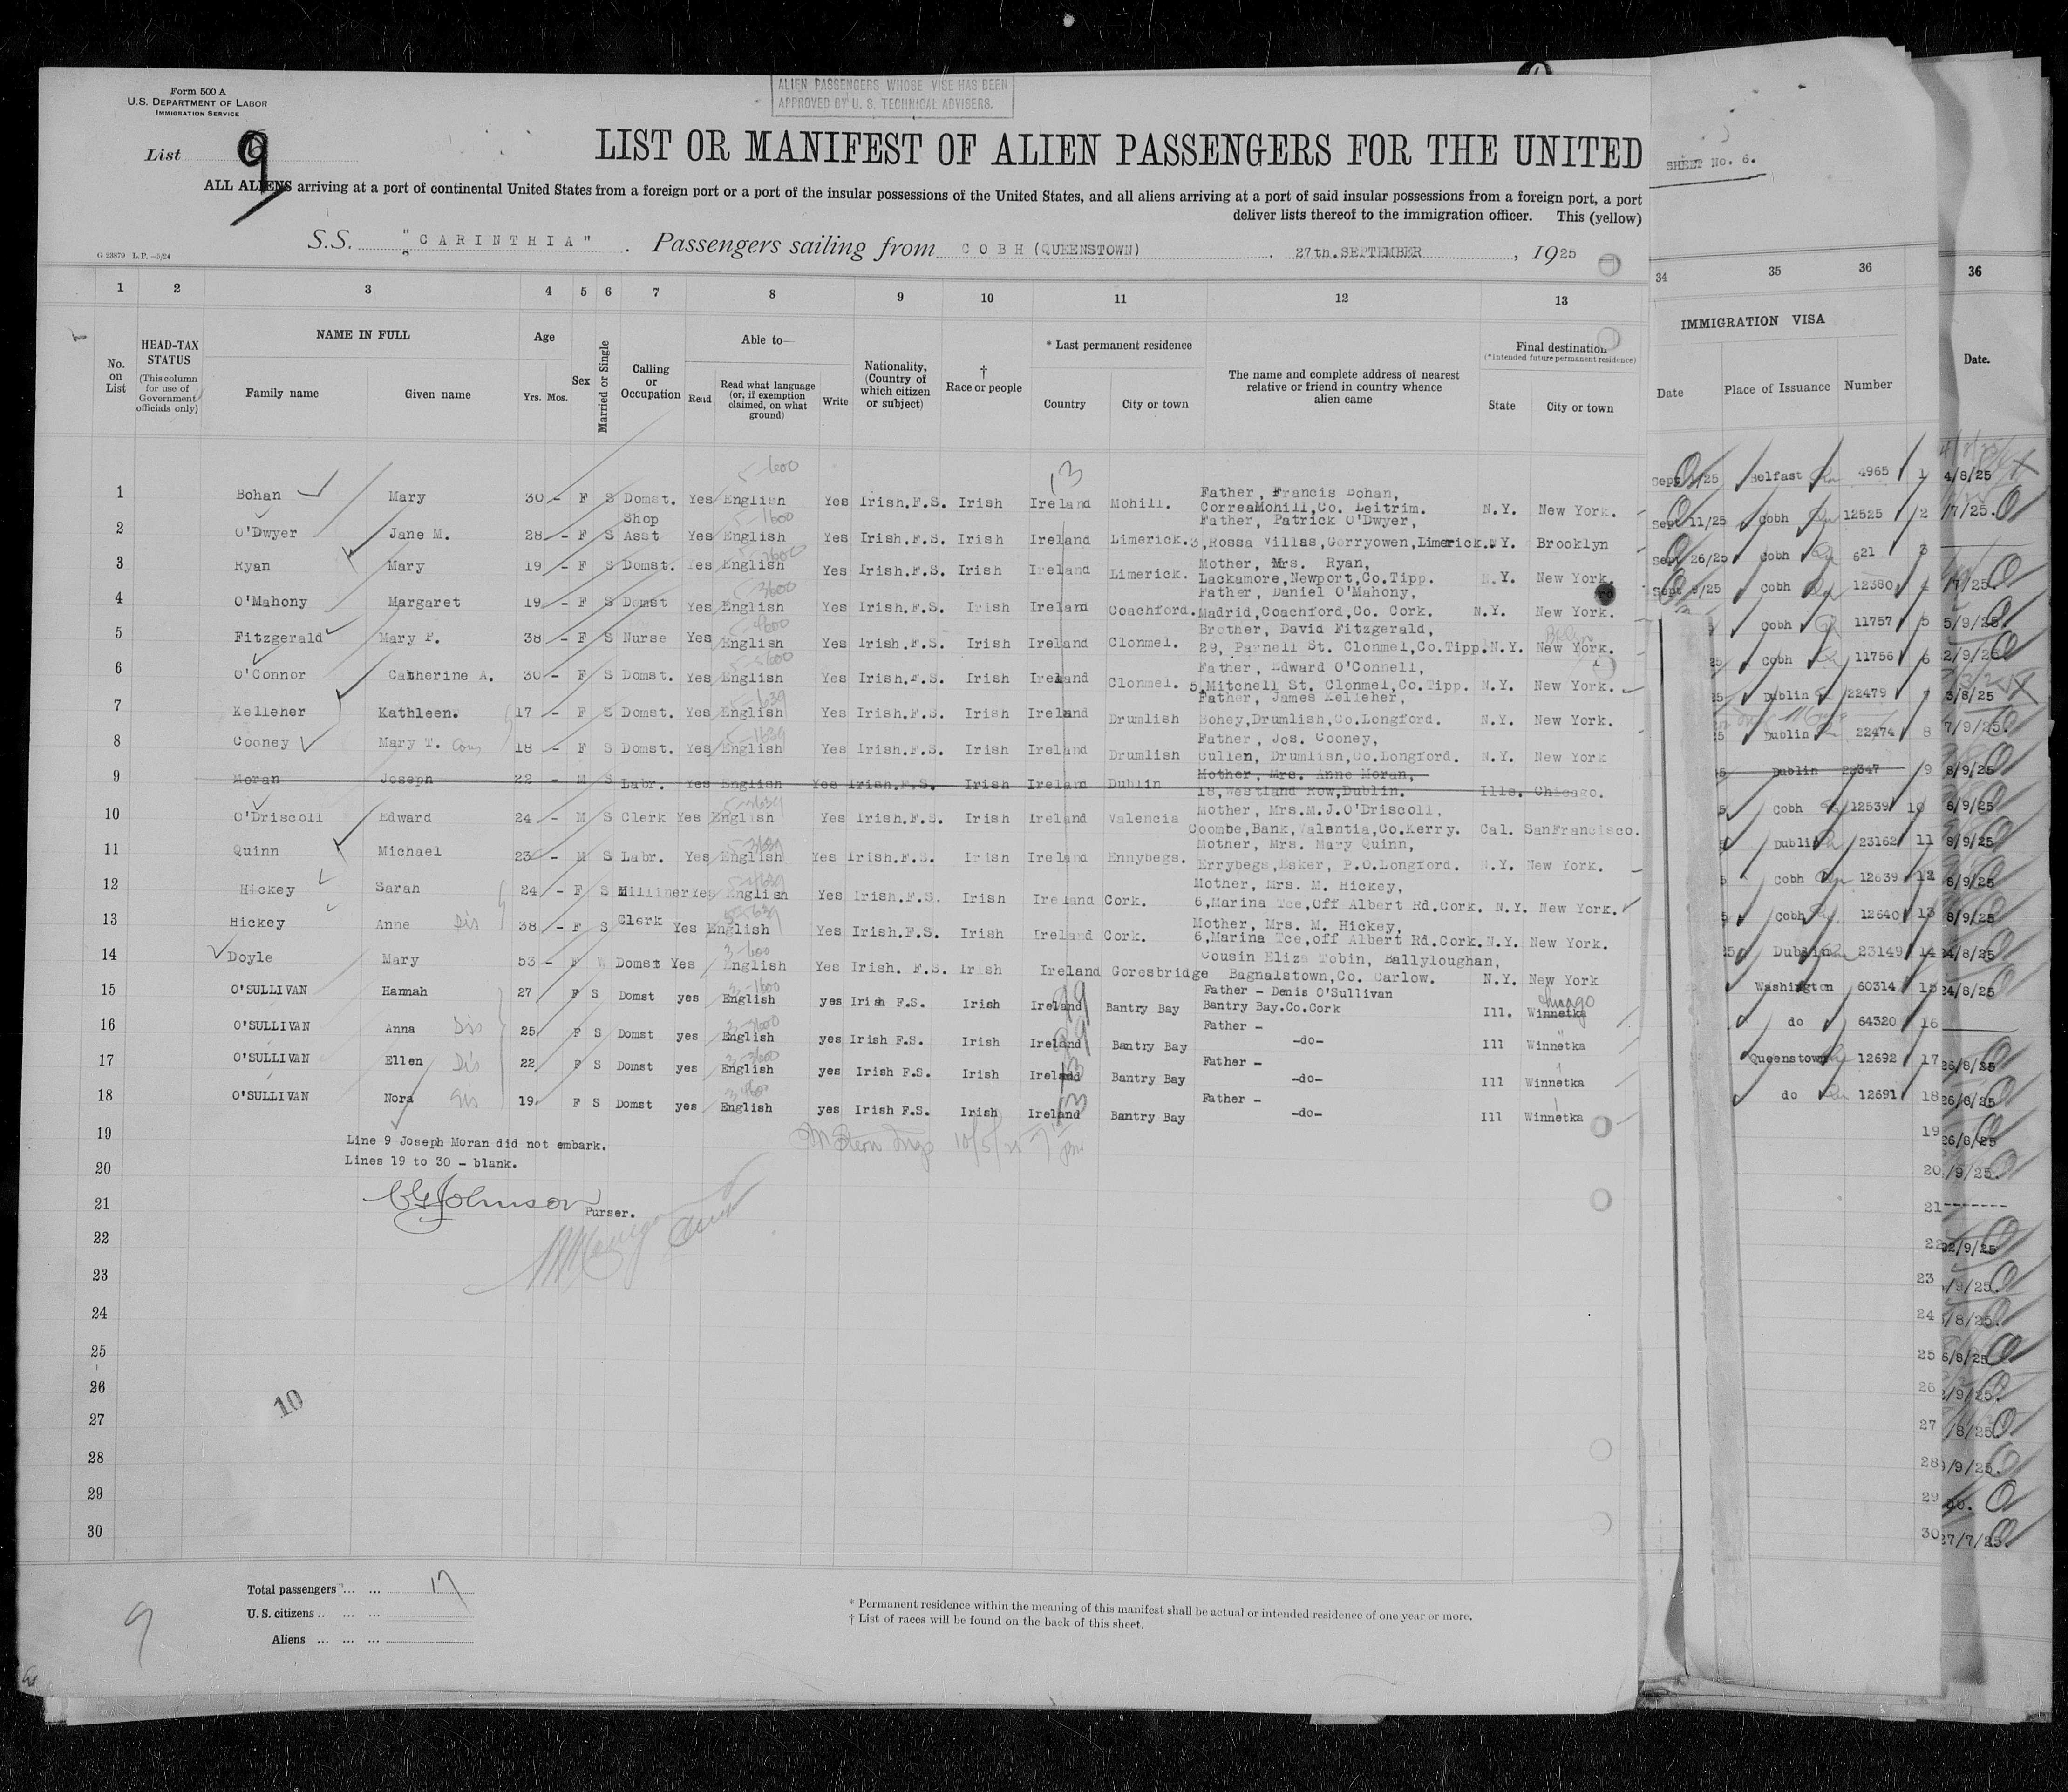 Form 500 A
U.S. DEPARTMENT OF LABOR
IMMIGRATION SERVICE
ALIEN PASSENGERS WHOSE VISE HAS BEEN
APPROVED BY U. S. TECHNICAL ADVISERS.
List 9
LIST OR MANIFEST OF ALIEN PASSENGERS FOR THE UNITED
SHEET No. 6.
ALL ALIENS arriving at a port of continental United States from a foreign port or a port of the insular possessions of the United States, and all aliens arriving at a port of said insular possessions from a foreign port, a port
deliver lists thereof to the immigration officer. This (yellow)
S.S. "CARINTHIA" . Passengers sailing from COBH (QUEENSTOWN) . 27th.SEPTEMBER , 1925
G 23879 L.P.—5/24
1 2 3 4 5 6 7 8 9 10 11 12 13 34 35 36 36
No. on List
HEAD-TAX STATUS
(This column for use of Government officials only)
NAME IN FULL
Family name Given name
Age
Yrs. Mos.
Sex
Married or Single
Calling or Occupation
Able to—
Read Read what language (or, if exemption claimed, on what ground) Write
Nationality, (Country of which citizen or subject)
† Race or people
* Last permanent residence
Country City or town
The name and complete address of nearest relative or friend in country whence alien came
Final destination
(*Intended future permanent residence)
State City or town
IMMIGRATION VISA
Date Place of Issuance Number Date.
5-600 13
1 Bohan Mary 30 - F S Domst. Yes English Yes Irish.F.S. Irish Ireland Mohill. Father, Francis Bohan, CorreaMohill,Co. Leitrim. N.Y. New York. Belfast 4965 1 4/8/25
2 O'Dwyer Jane M. 28 - F S Shop Asst Yes English Yes Irish.F.S. Irish Ireland Limerick. Father, Patrick O'Dwyer, 3,Rossa Villas,Gorryowen,Limerick. N.Y. Brooklyn Sept 11/25 Cobh 12525 2 /7/25.
3 Ryan Mary 19 - F S Domst. Yes English Yes Irish.F.S. Irish Ireland Limerick. Mother, Mrs. Ryan, Lackamore,Newport,Co.Tipp. N.Y. New York. Sept 26/25 Cobh 621 3
4 O'Mahony Margaret 19 - F S Domst Yes English Yes Irish.F.S. Irish Ireland Coachford. Father, Daniel O'Mahony, Madrid,Coachford,Co. Cork. N.Y. New York. Sept 9/25 Cobh 12380 4 /7/25.
5 Fitzgerald Mary P. 38 - F S Nurse Yes English Yes Irish.F.S. Irish Ireland Clonmel. Brother, David Fitzgerald, 29, Parnell St. Clonmel,Co.Tipp. N.Y. New York. Cobh 11757 5 5/9/25.
6 O'Connor Catherine A. 30 - F S Domst. Yes English Yes Irish.F.S. Irish Ireland Clonmel. Father, Edward O'Connell, 5,Mitchell St. Clonmel,Co.Tipp. N.Y. New York. 25 Cobh 11756 6 2/9/25
7 Kelleher Kathleen. 17 - F S Domst. Yes English Yes Irish.F.S. Irish Ireland Drumlish Father, James Kelleher, Bohey,Drumlish,Co.Longford. N.Y. New York. 25 Dublin 22479 7 3/8/25
8 Cooney Mary T. Cous 18 - F S Domst. Yes English Yes Irish.F.S. Irish Ireland Drumlish Father, Jos. Cooney, Cullen, Drumlish,Co.Longford. N.Y. New York 25 Dublin 22474 8 7/9/25
9 Moran Joseph 22 - M S Labr. Yes English Yes Irish.F.S. Irish Ireland Dublin Mother, Mrs. Anne Moran, 18,Westland Row,Dublin. Ills. Chicago. Dublin 22347 9 8/9/25
10 O'Driscoll Edward 24 - M S Clerk Yes English Yes Irish.F.S. Irish Ireland Valencia Mother, Mrs.M.J.O'Driscoll, Coombe,Bank,Valentia,Co.Kerry. Cal. SanFrancisco. Cobh 12539 10 8/9/25
11 Quinn Michael 23 - M S Labr. Yes English Yes Irish.F.S. Irish Ireland Ennybegs. Mother, Mrs. Mary Quinn, Errybegs,Esker, P.O.Longford. N.Y. New York. Dublin 23162 11 8/9/25
12 Hickey Sarah 24 - F S Milliner Yes English Yes Irish.F.S. Irish Ireland Cork. Mother, Mrs. M. Hickey, 6,Marina Tce,Off Albert Rd.Cork. N.Y. New York. Cobh 12639 12 8/9/25
13 Hickey Anne Sis 38 - F S Clerk Yes English Yes Irish.F.S. Irish Ireland Cork. Mother, Mrs. M. Hickey, 6,Marina Tce,off Albert Rd.Cork. N.Y. New York. Cobh 12640 13 8/9/25
14 Doyle Mary 53 - F W Domst Yes English Yes Irish. F.S. Irish Ireland Goresbridge Cousin Eliza Tobin, Ballyloughan, Bagnalstown,Co. Carlow. N.Y. New York 25 Dublin 23149 14 24/8/25
15 O'SULLIVAN Hannah 27 F S Domst yes English yes Irish F.S. Irish Ireland Bantry Bay Father - Denis O'Sullivan Bantry Bay.Co.Cork Ill. Winnetka Chicago Washington 60314 15 24/8/25
16 O'SULLIVAN Anna Sis 25 F S Domst yes English yes Irish F.S. Irish Ireland Bantry Bay Father - -do- Ill Winnetka do 64320 16
17 O'SULLIVAN Ellen Sis 22 F S Domst yes English yes Irish F.S. Irish Ireland Bantry Bay Father - -do- Ill Winnetka Queenstown 12692 17 26/8/25
18 O'SULLIVAN Nora Sis 19 F S Domst yes English yes Irish F.S. Irish Ireland Bantry Bay Father - -do- Ill Winnetka do 12691 18 26/8/25
19 Line 9 Joseph Moran did not embark. 19 26/8/25
20 Lines 19 to 30 - blank. 20 /9/25.
21 Johnson Purser. 21 -------
22 22 22/9/25
23 23 /9/25.
24 24 /8/25.
25 25 6/8/25
26 26 2/9/25.
27 27 /8/25
28 28 /9/25.
29 29 Do.
30 30 27/7/25.
10
Total passengers ... ... 17
U. S. citizens ... ... ...
Aliens ... ... ...
9
* Permanent residence within the meaning of this manifest shall be actual or intended residence of one year or more.
† List of races will be found on the back of this sheet.